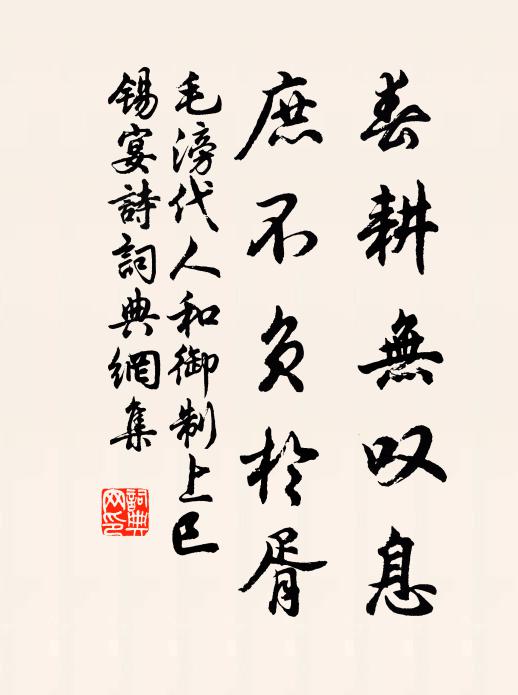 春耕無叹息
庶不负於胥
毛滂代人和御制上巳
锡宴詩詞典網集
詞典
网印